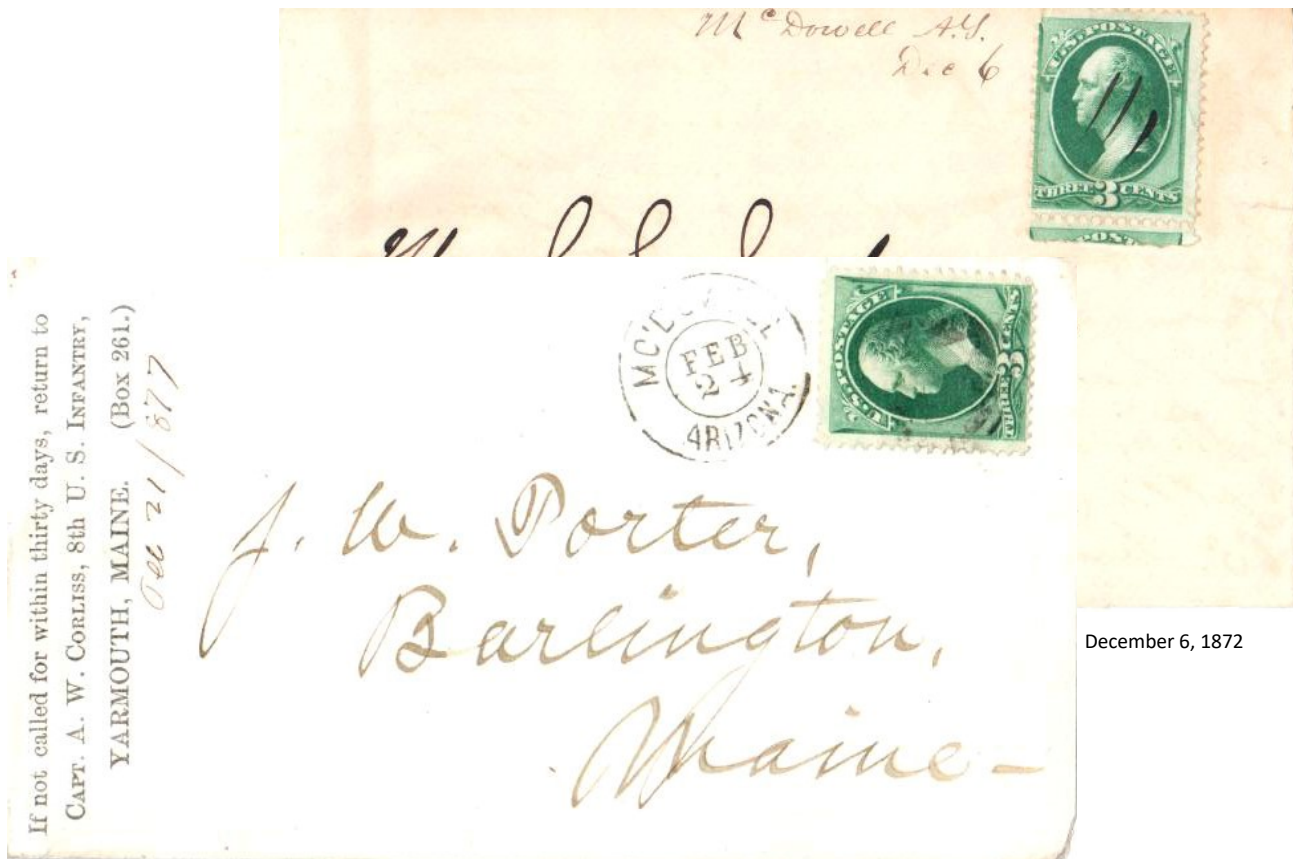 McDowell A.T.
Dec 6
U.S. POSTAGE
THREE 3 CENTS
If not called for within thirty days, return to
CAPT. A. W. CORLISS, 8th U. S. INFANTRY,
YARMOUTH, MAINE. (Box 261.)
21/877
FEB
24
ARIZONA.
U.S. POSTAGE
THREE 3 CENTS
J. W. Porter,
Barlington,
Maine-
December 6, 1872